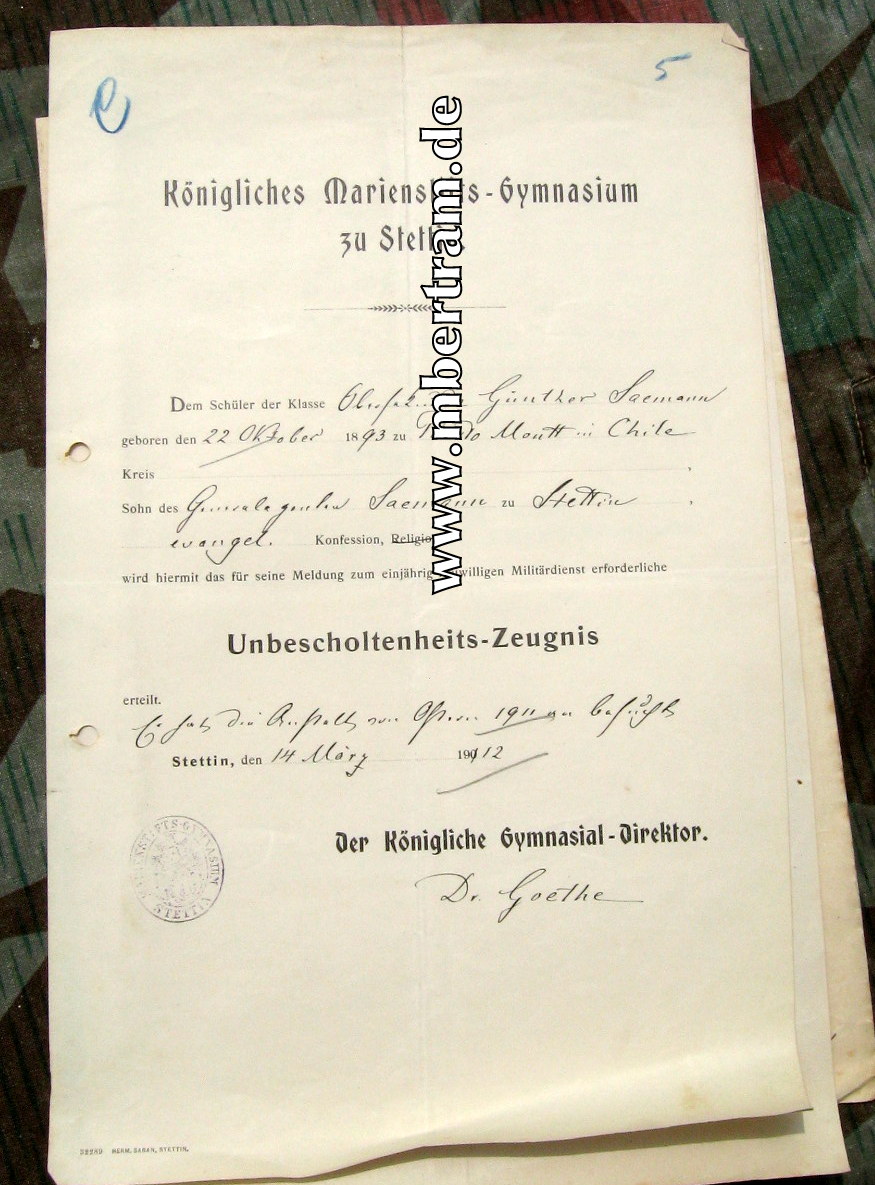 5
Königliches Marienstifts-Gymnasium
zu Stettin
www.mbertram.de
Dem Schüler der Klasse Günther Saemann
geboren den 22 Oktober 1893 zu Montt in Chile
Kreis
Sohn des Generalagenten Saemann zu Stettin
evangel. Konfession, Religion
wird hiermit das für seine Meldung zum einjährig-freiwilligen Militärdienst erforderliche
Unbescholtenheits-Zeugnis
erteilt.
Er hat die Anstalt von Ostern 1911 an besucht
Stettin, den 14 März 1912
MARIENSTIFTS-GYMNASIUM STETTIN
Der Königliche Gymnasial-Direktor.
Dr. Goethe
32289 HERM. SARAN, STETTIN.